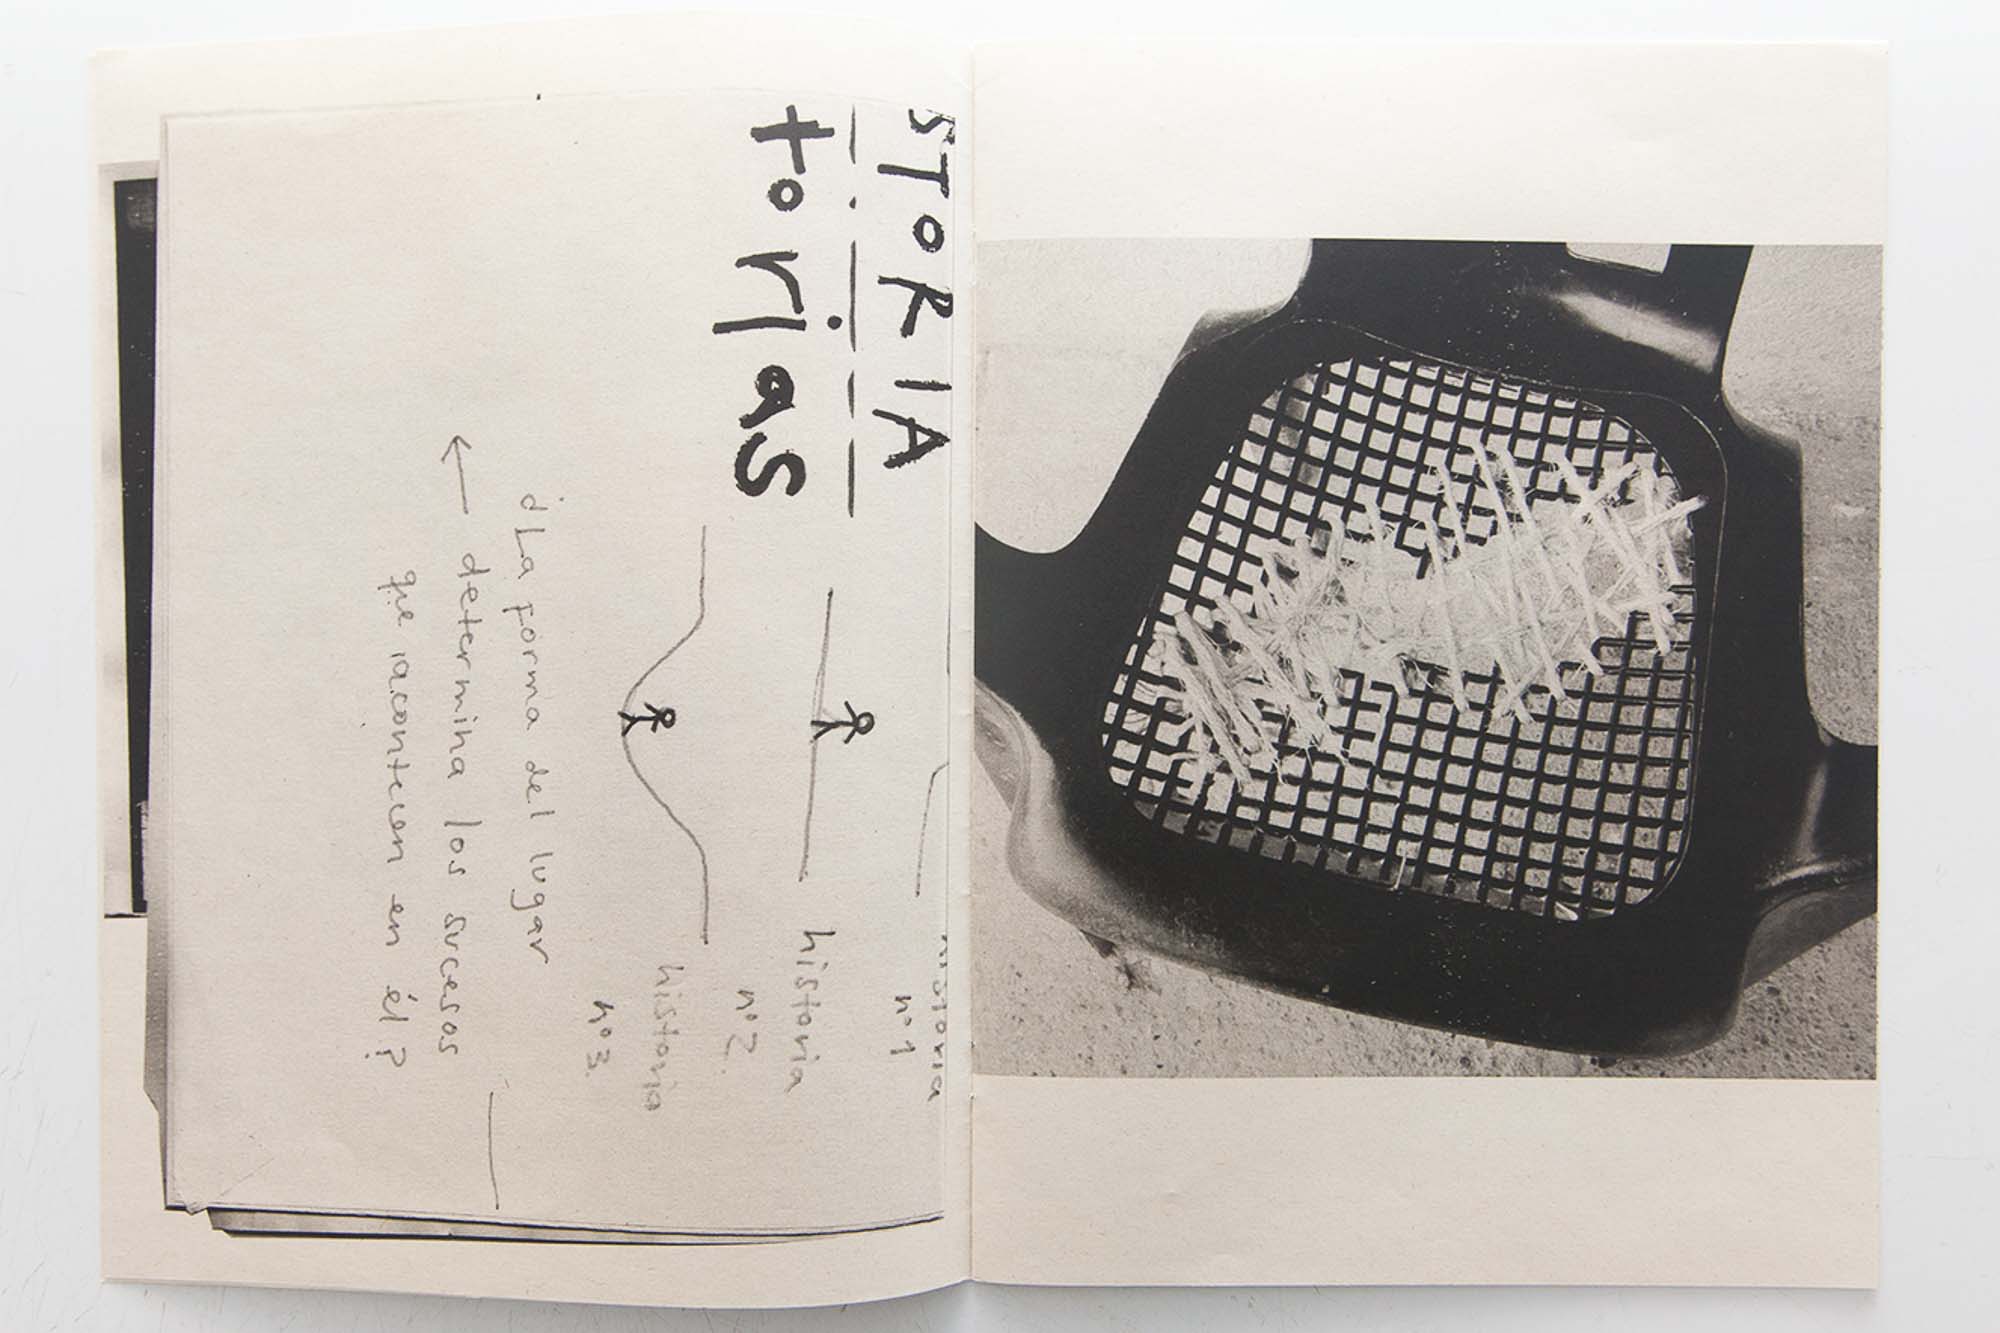 STORIA
torias
historia
nº1
historia
nº2.
historia
nº3.
¿La forma del lugar
determina los sucesos
que acontecen en él?